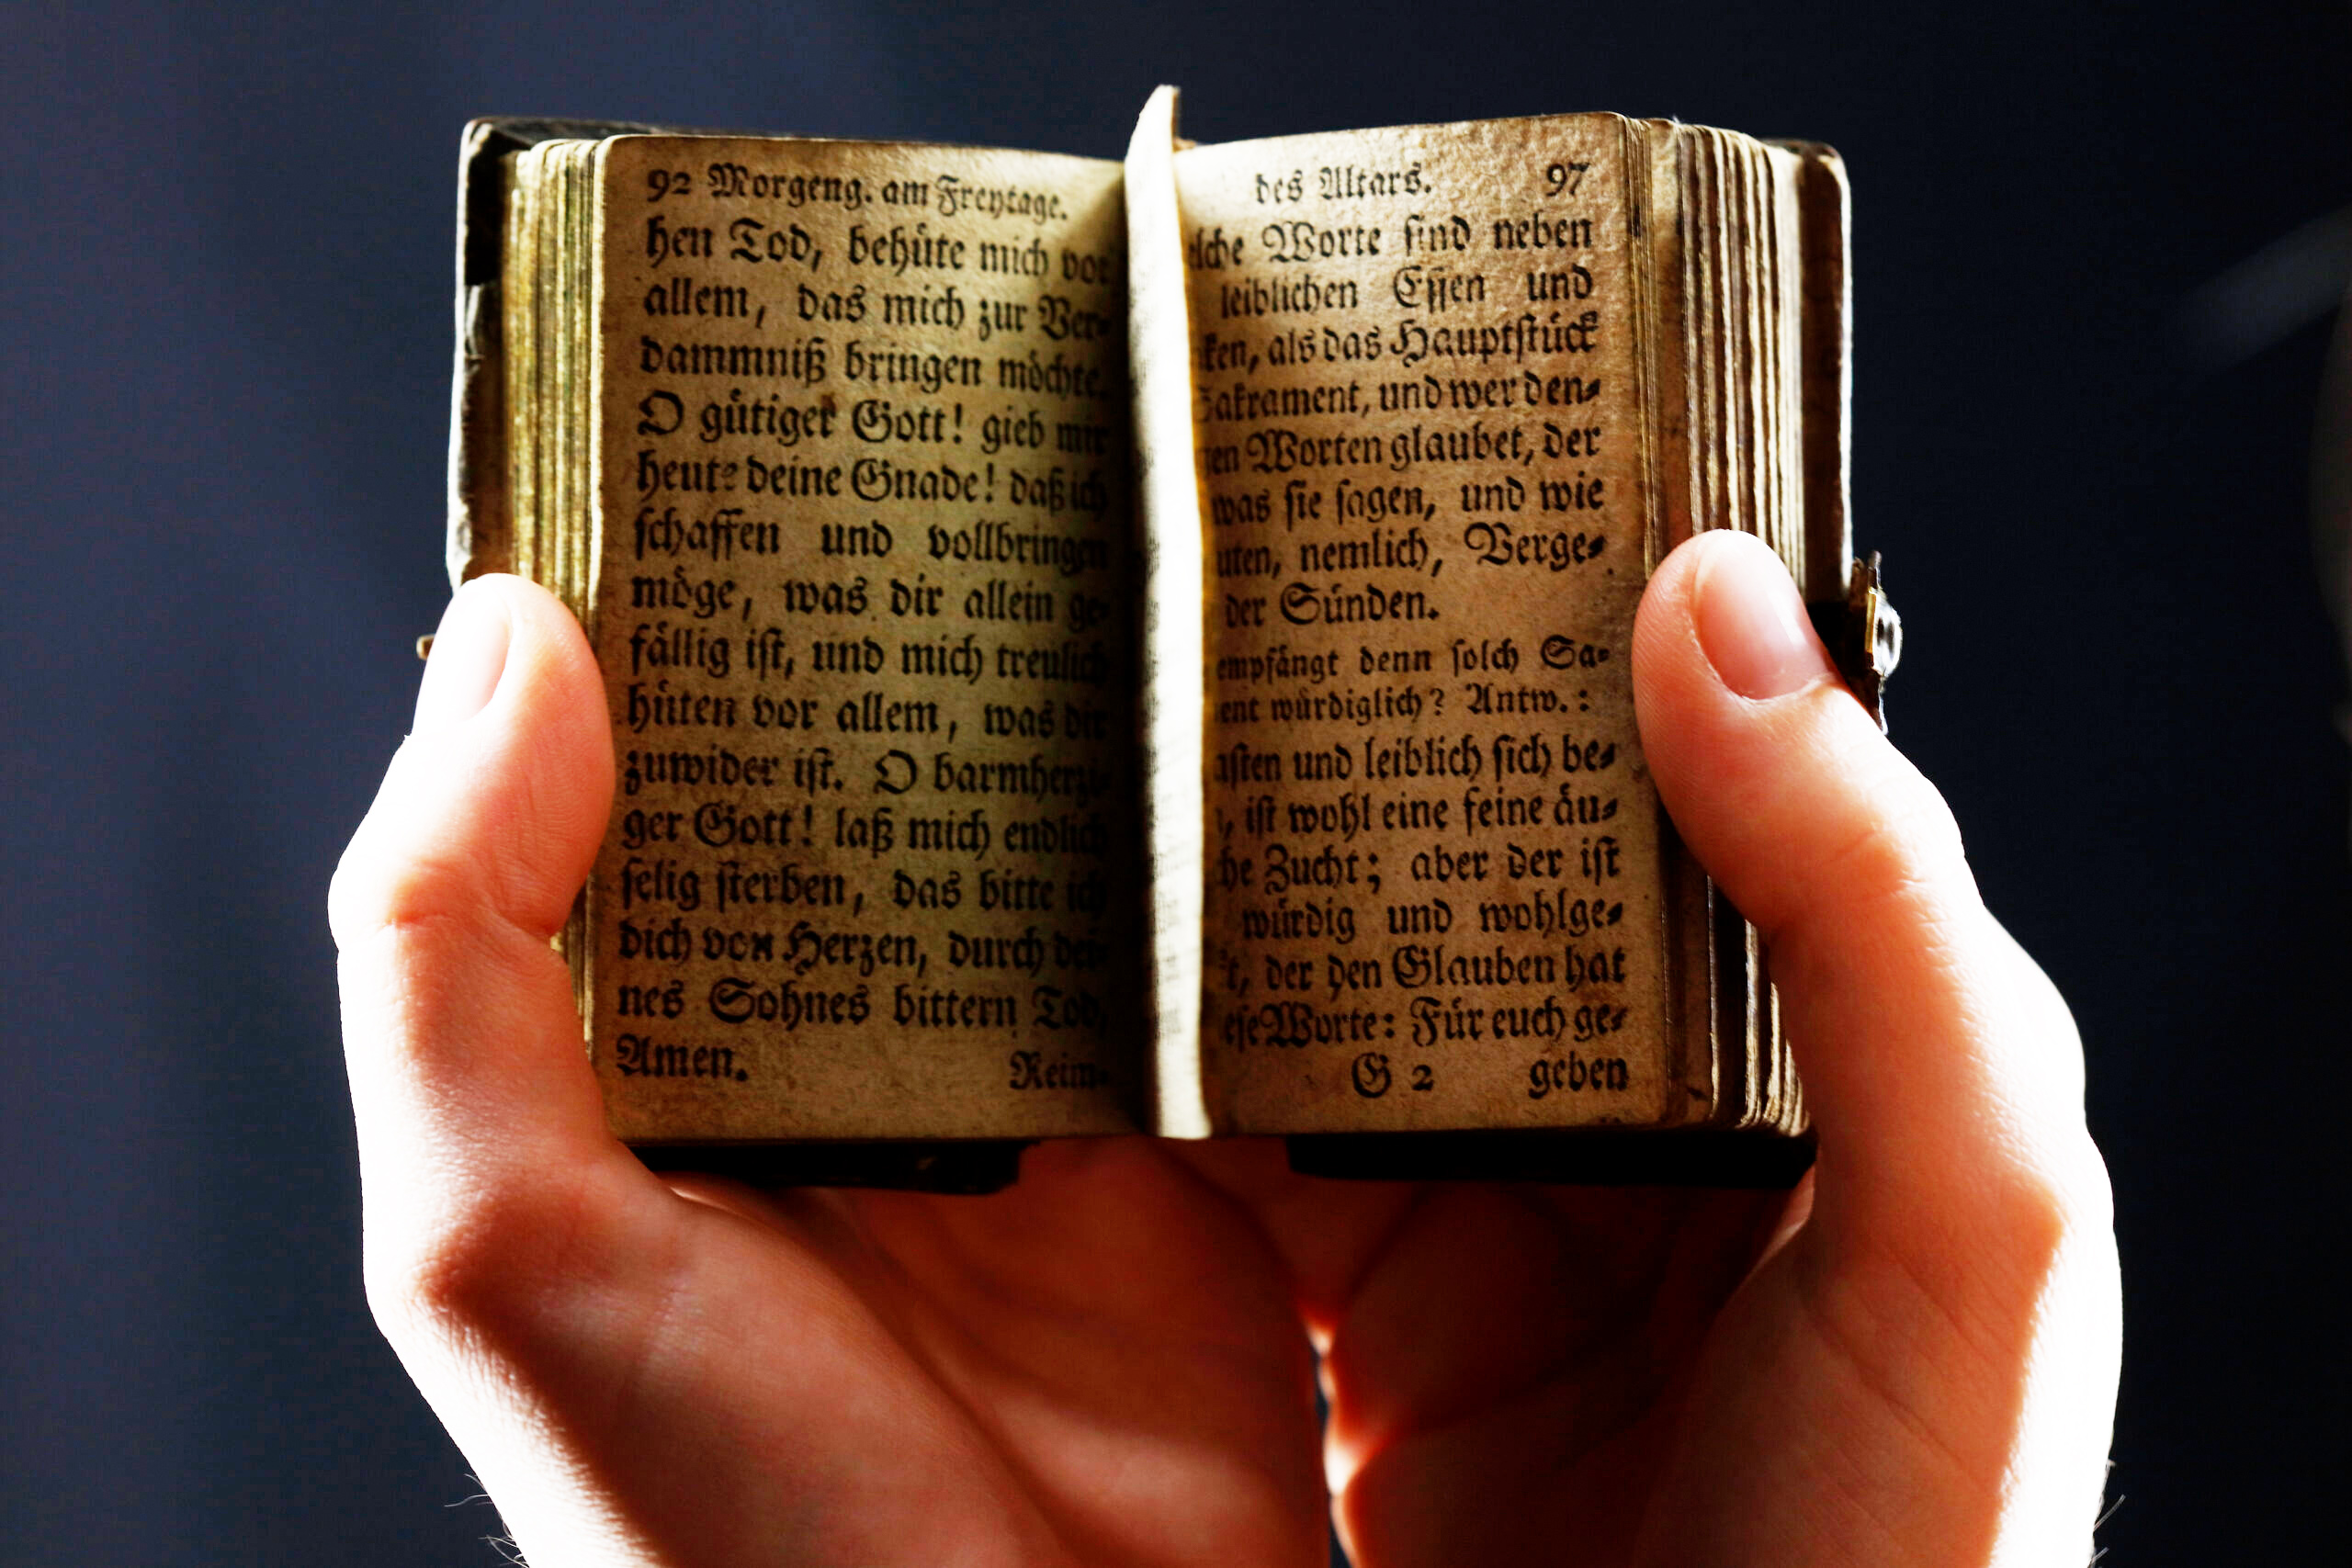 92 Morgeng. am Freytage.
hen Tod, behüte mich vor
allem, das mich zur Ver-
dammniß bringen möchte.
O gütiger Gott! gieb mir
heute deine Gnade! daß ich
ſchaffen und vollbringen
möge, was dir allein ge-
fällig iſt, und mich treulich
hüten vor allem, was dir
zuwider iſt. O barmherzi-
ger Gott! laß mich endlich
ſelig ſterben, das bitte ich
dich von Herzen, durch dei-
nes Sohnes bittern Tod,
Amen.
Reim-
des Altars. 97
elche Worte ſind neben
leiblichen Eſſen und
ken, als das Hauptſtück
Sakrament, und wer den-
en Worten glaubet, der
was ſie ſagen, und wie
uten, nemlich, Verge-
der Sünden.
empfängt denn ſolch Sa-
ent würdiglich? Antw.:
aſten und leiblich ſich be-
, iſt wohl eine feine äu-
he Zucht; aber der iſt
würdig und wohlge-
t, der den Glauben hat
eſe Worte: Für euch ge-
G 2 geben